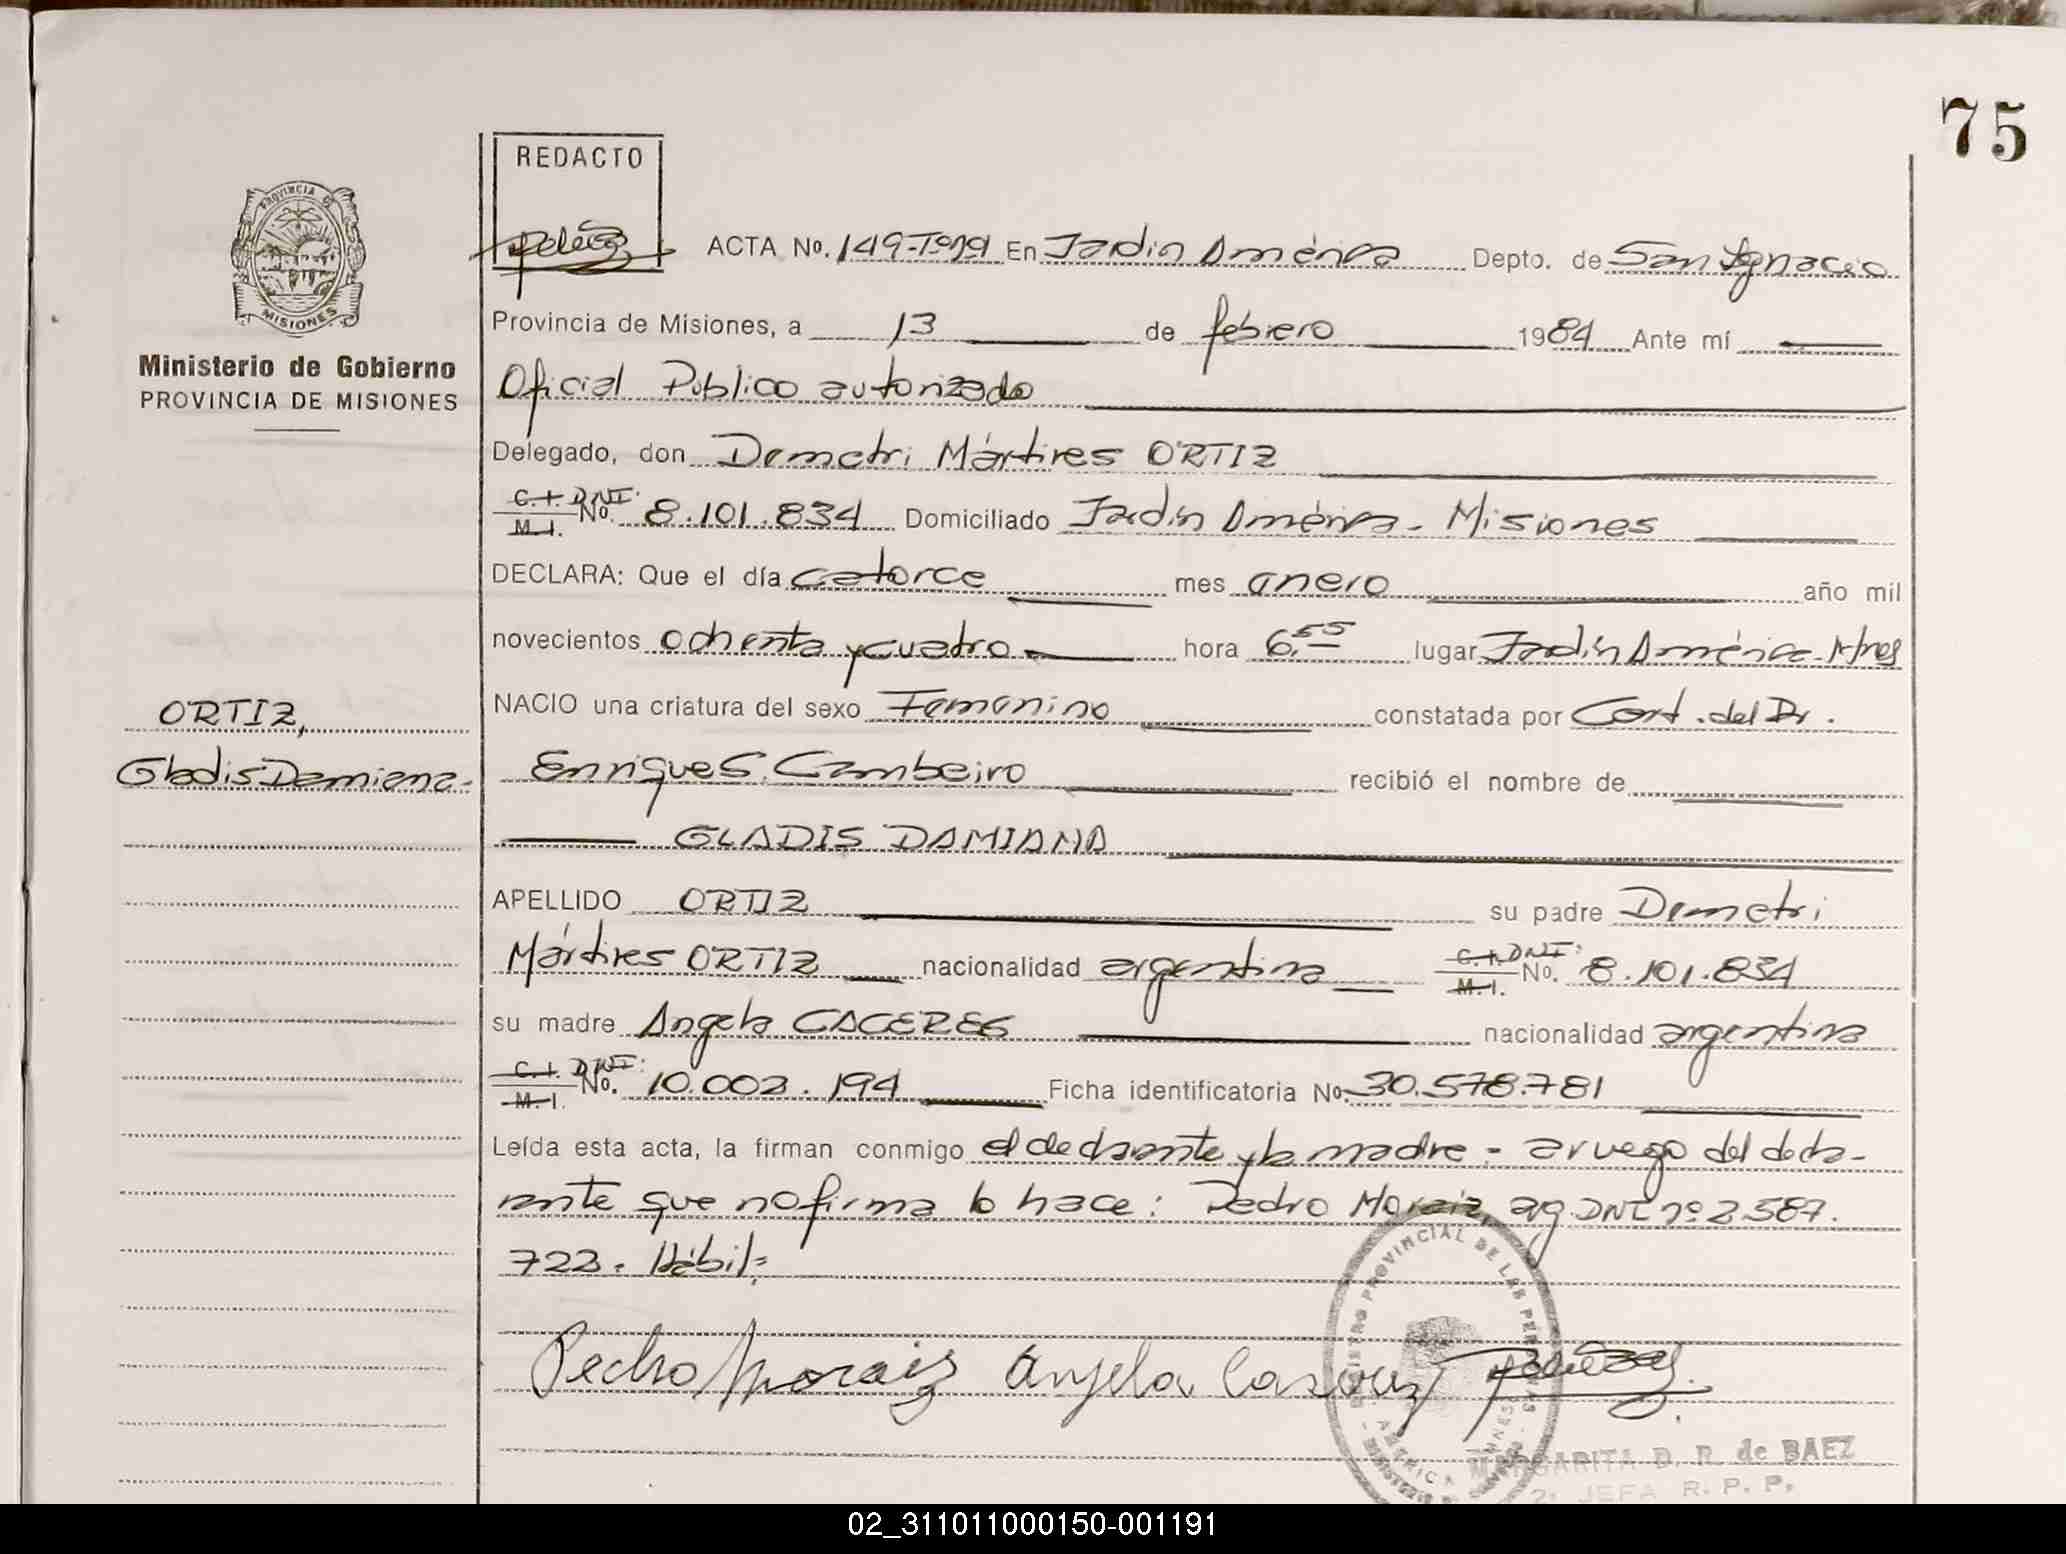 75
REDACTO
PROVINCIA DE
MISIONES
Ministerio de Gobierno
PROVINCIA DE MISIONES
ACTA No. 149-Tº En Jardín América Depto. de San Ignacio
Provincia de Misiones, a 13 de febrero 1984 Ante mí
Oficial Publico autorizado
Delegado, don Demetri Mártires ORTIZ
C.I. DNI: M.I. No. 8.101.834 Domiciliado Jardín América - Misiones
DECLARA: Que el día catorce mes enero año mil
novecientos ochenta y cuatro hora 6,55 lugar Jardín América - Mnes
NACIO una criatura del sexo Femenino constatada por Cert. del Dr.
Enrique S. Cambeiro recibió el nombre de
GLADIS DAMIANA
ORTIZ,
Gladis Damiana.-
APELLIDO ORTIZ su padre Demetri
Mártires ORTIZ nacionalidad argentina C.I. DNI: M.I. No. 8.101.834
su madre Angela CACERES nacionalidad argentina
C.I. DNI: M.I. No. 10.002.194 Ficha identificatoria No. 30.578.781
Leída esta acta, la firman conmigo el declarante y la madre - a ruego del decla-
rante que no firma lo hace: Pedro Moraiz, arg. DNI nº 2.587.
722. Hábil=
Pedro Moraiz Angela Caceres
REGISTRO PROVINCIAL DE LAS PERSONAS
AMERICA
MARGARITA D. R. de BAEZ
2ª JEFA R. P. P.
02_311011000150-001191